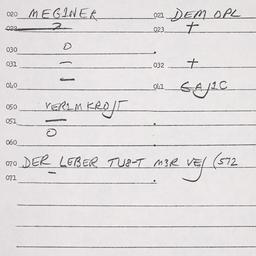 020 MEGINER 021 DEM OPL
022 2 023 +
030 O
031 – 032 +
040 – 041 GAJIC
050 VERIMKROJT
051 –
O
060
070 DER LEBER TU8-T M3R VEJ (572
071 –